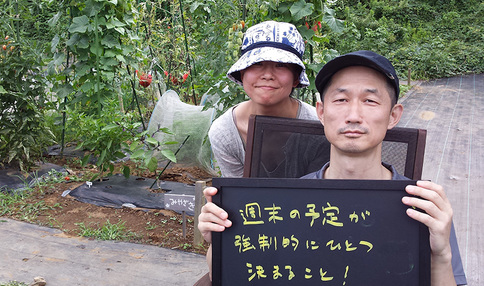 みやざき
週末の予定が
強制的にひとつ
決まること!